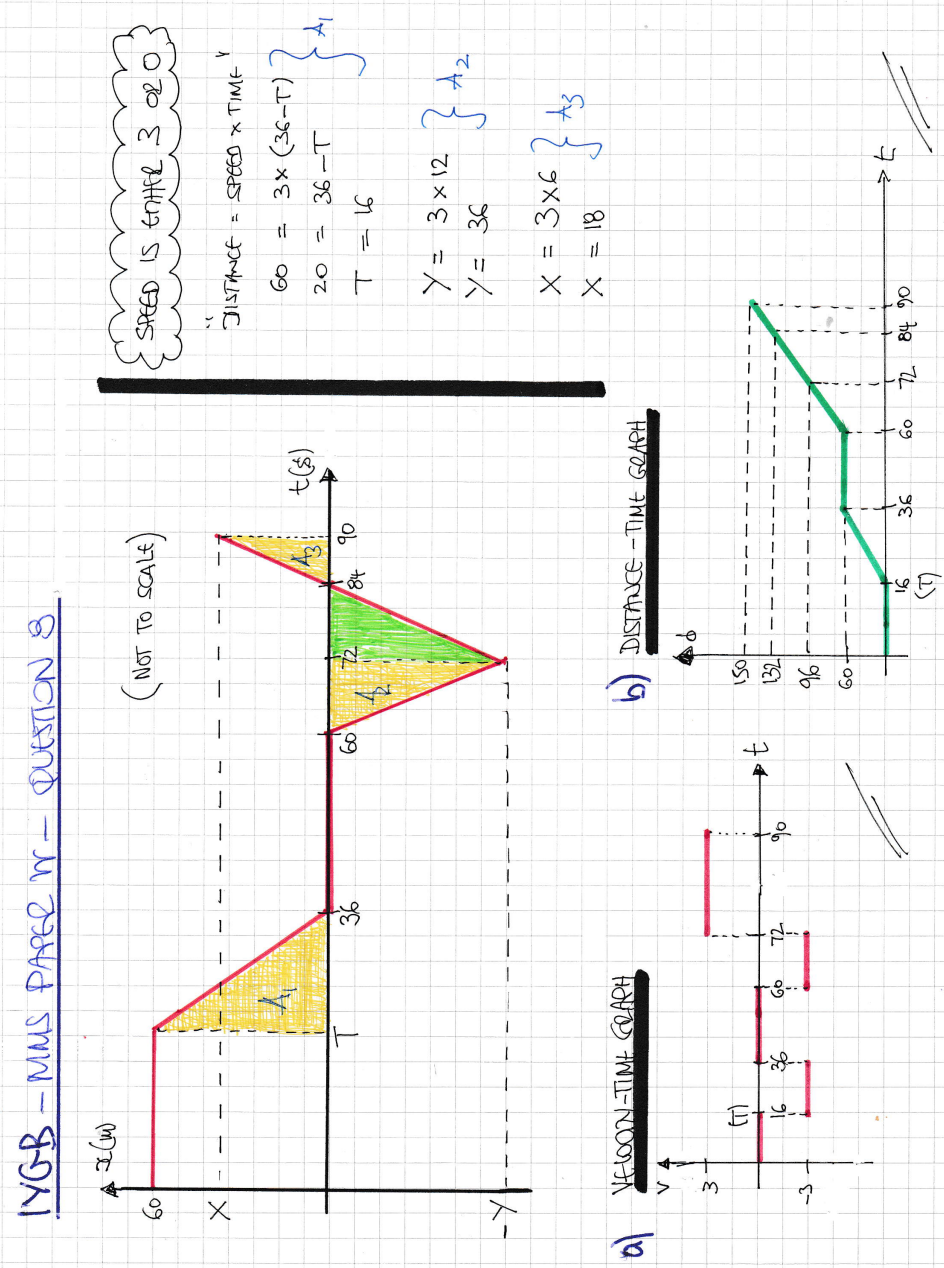 IYGB - MMS PAPER W - QUESTION 8
x(m)
(NOT TO SCALE)
60
X
-Y
T
36
60
72
84
90
t(s)
A1
A2
A3
SPEED IS EITHER 3 OR 0
"DISTANCE = SPEED x TIME"
60 = 3 x (36-T)
20 = 36-T
T = 16
} A1
Y = 3 x 12
Y = 36
} A2
X = 3 x 6
X = 18
} A3
a) VELOCITY-TIME GRAPH
v
3
-3
(T)
16
36
60
72
90
t
b) DISTANCE-TIME GRAPH
d
150
132
96
60
16
(T)
36
60
72
84
90
t